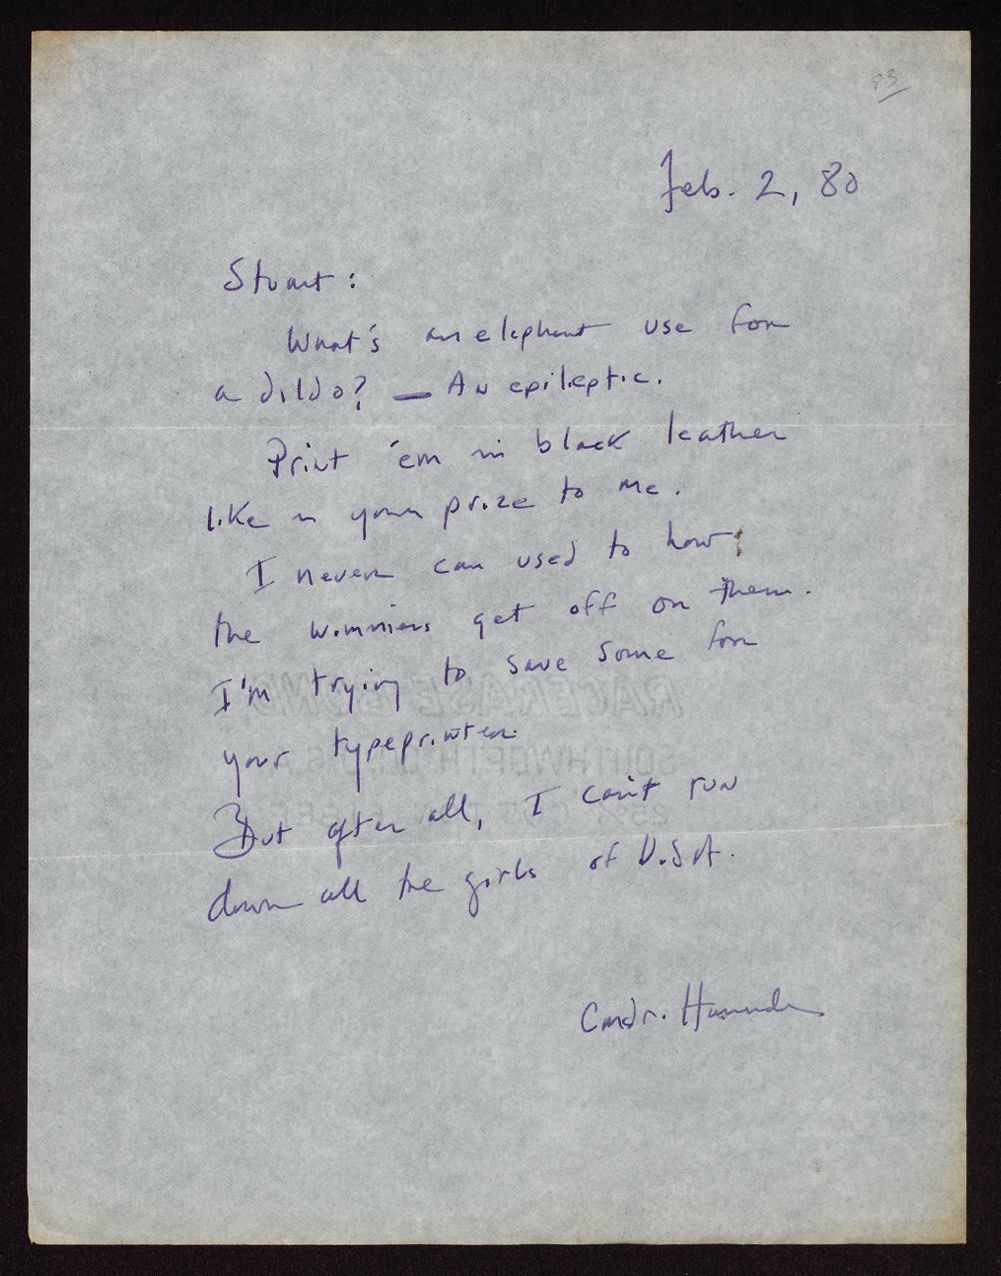 83
Feb. 2, 80
Stuart:
What's an elephant use for
a dildo? — An epileptic.
Print 'em in black leather
like in your prize to me.
I never can used to how
the wimmiens get off on them.
I'm trying to save some for
your typeprinter.
But after all, I can't run
down all the girls of U.S.A.
Cmdr.
RACERASE BOND
SOUTHWORTH CO. U.S.A.
25% COTTON FIBER